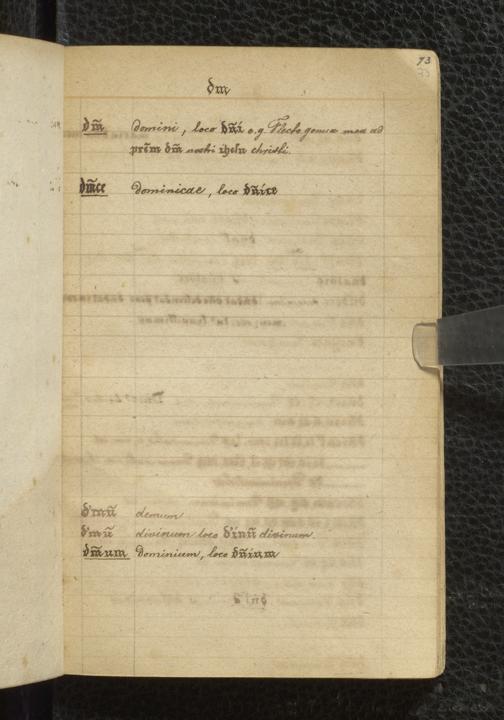 73
dm
dm̄ domini, loco dn̄i e.g. Flecto genua mea ad
pr̄em dm̄ nostri ihesu christi.
dm̄ce dominicae, loco dn̄ice
demum
divinum loco divinum.
dm̄um Dominium, loco dn̄ium